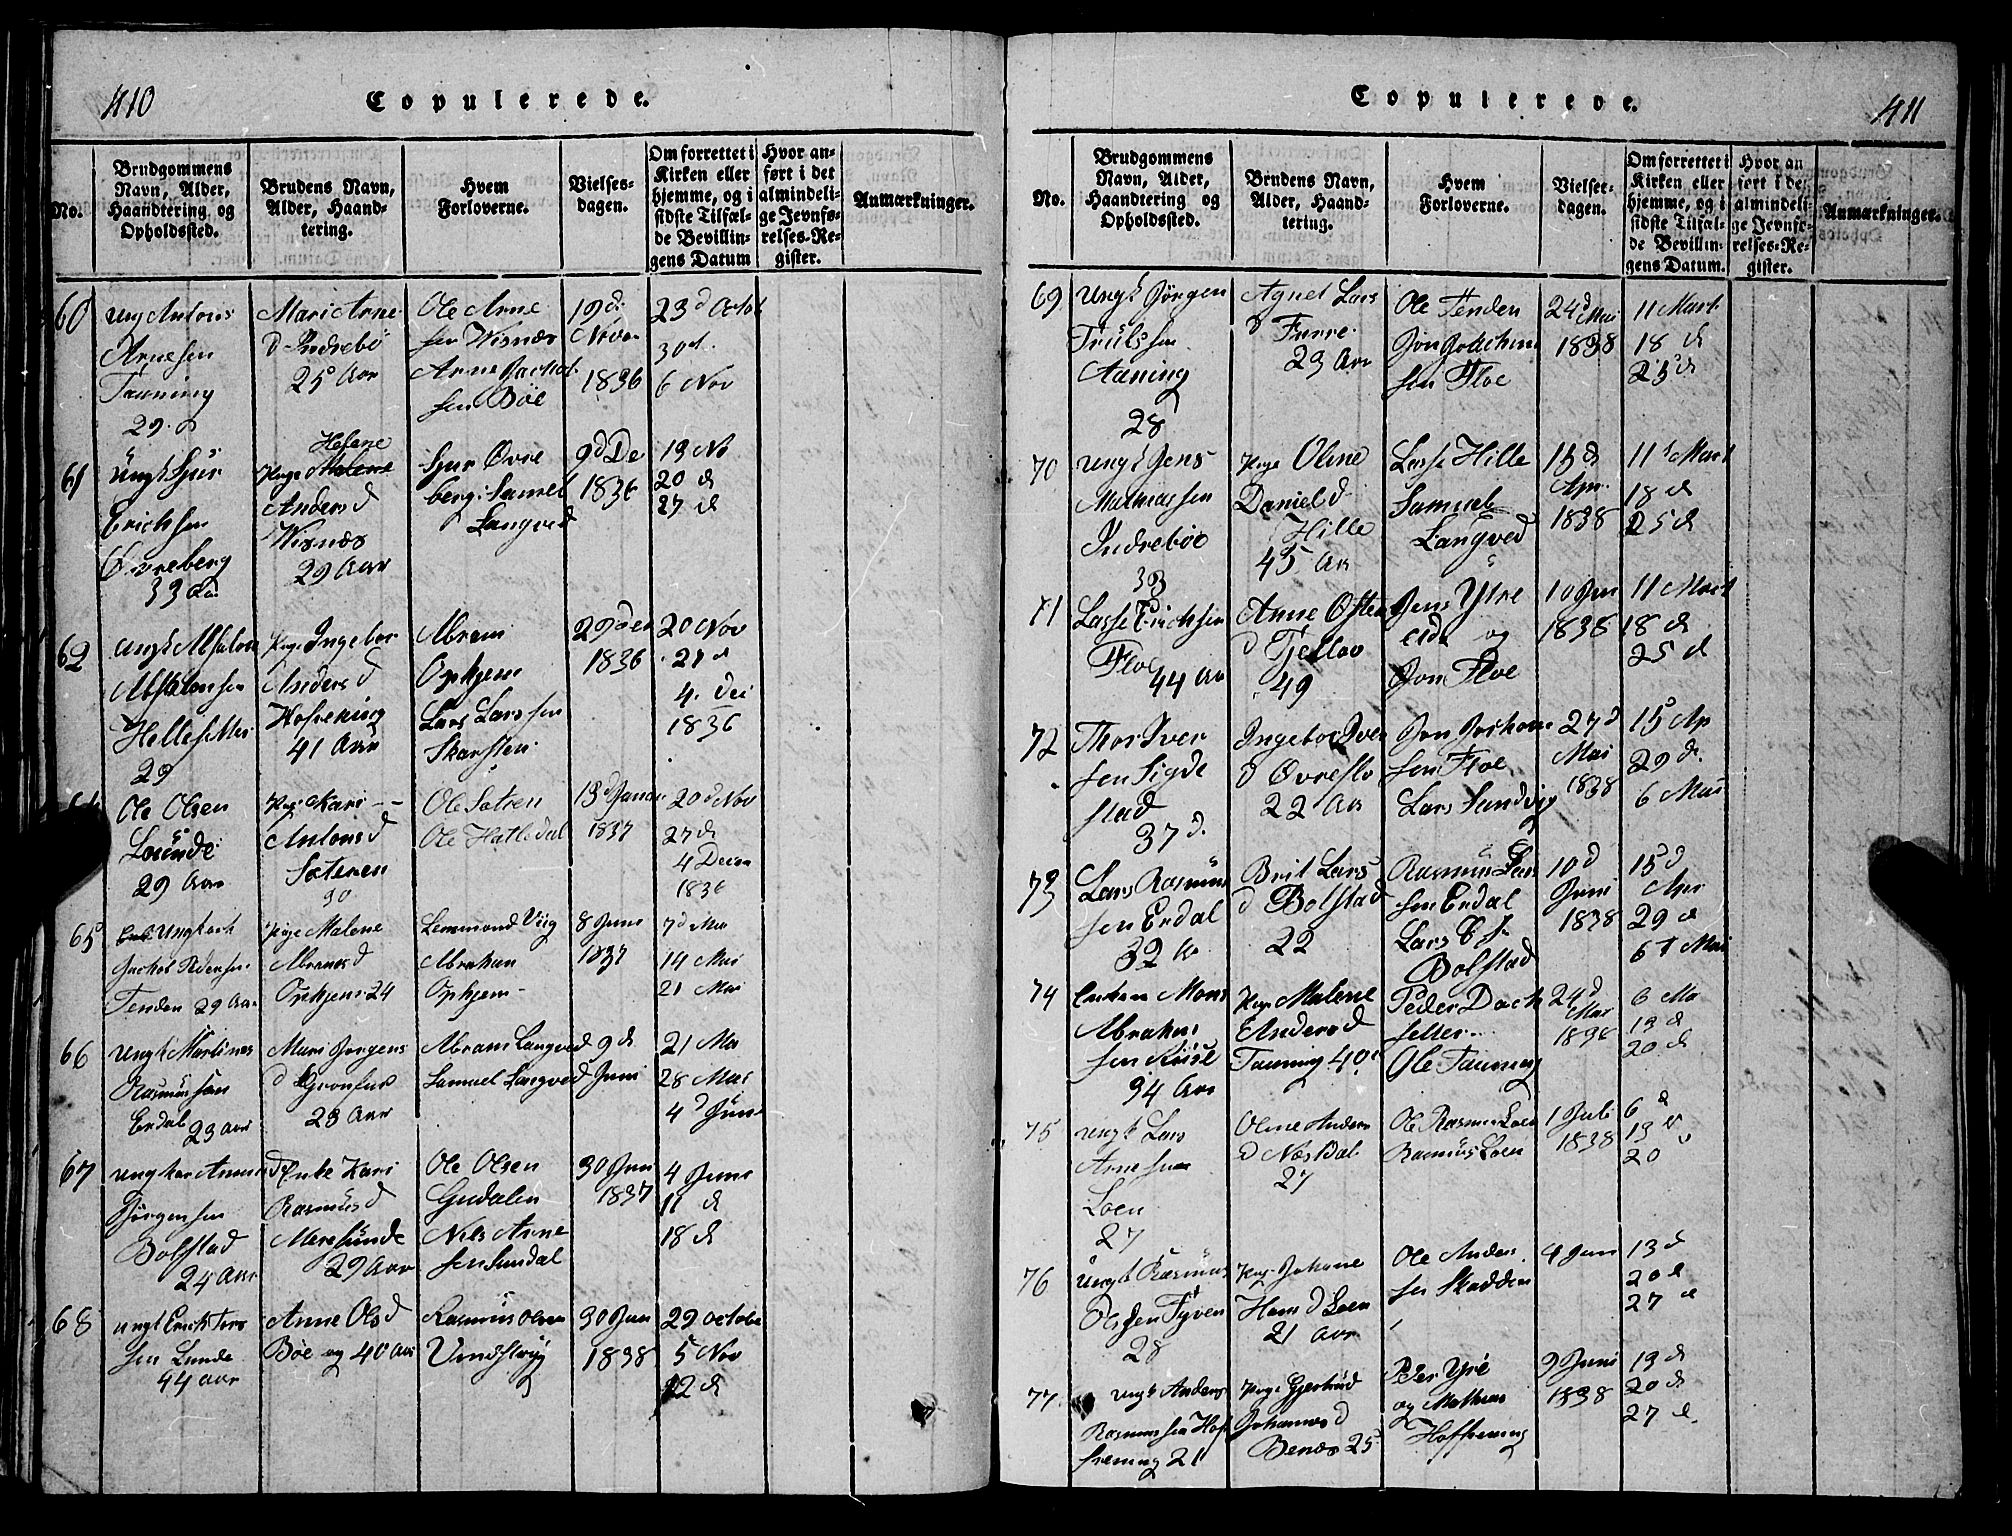 410
Copulerede.
No.
Brudgommens
Navn, Alder,
Haandtering og
Opholdssted.
Brudens Navn,
Alder, Haand-
tering.
Hvem
Forloverne.
Vielses-
dagen.
Om forrettet i
Kirken eller
hjemme, og i
sidste Tilfæl-
de Bevillin-
gens Datum
Hvor an-
ført i det
almindeli-
ge Jevnfø-
relses-Re-
gister.
Anmærkninger.
60
Ung Antonis
Arnesen
Tauning
29
Mari Arne
d Indrebö
25 Aar
Ole Arne
sen Wisnæs
Arne Jachob
sen Böe
19 d
Novem
1836
23 d Octob
30 d
6 Nov
61
Ungk Sjur
Erichsen
Øvreberg
33
Helene
Pige Malene
Anders d
Wisnæs
29 Aar
Sjur Øvre
berg: Samel
Langved
9 d De
1836
13 No
20 d
27 d
62
Ungk Absalon
Absalonsen
Hellesetter
29
Pige Ingebor
Anders d
Hofrening
41 Aar
Abram
Ophjem
Lars Larssen
Skarsten
29 d
1836
20 Nov
4. Dec
1836
Ole Olsen
Loünde
29 Aar
Pige Kari
Antons d
Sæteren
30
Ole Sætren
Ole Hatledal
13 d Januar
1837
20 d Nov
27 d
4 Decem
1836
65
Ungkarl
Jachob Pedersen
Tenden 29 Aar
Pige Malene
Abrams d
Ophjem 24
Lemmond Viig
Abraham
Ophjem
8 Juni
1837
7 d Mai
14 Mai
21 Mai
66
Ungk Martinus
Rasmussen
Erdal 23 Aar
Mari Jørgens
d Gronfur
23 Aar
Abram Langved
Samuel Langved
9 d
Juni
21 Ma
28 Mai
4 d Juni
67
Ungkar Arnun
Jörgensen
Bolstad
24 Aar
Enke Kari
Rasmus d
Meresünde
29 Aar
Ole Olsen
Gudalen
Nils Arne
sen Sundal
30 Jun
1837
4 Juni
11 d
18 d
68
Ungk Erick
sen Lunde
44 Aar
Anne Ols d
Böe og 40 Aar
Rasmus Olsen
30 Jun
1838
29 octobe
5 Nov
12 d
Copulerede.
411
No.
Brudgommens
Navn, Alder,
Haandtering og
Opholdssted.
Brudens Navn,
Alder, Haand-
tering.
Hvem
Forloverne.
Vielses-
dagen.
Om forrettet i
Kirken eller
hjemme, og i
sidste Tilfæl-
de Bevillin-
gens Datum.
Hvor an
ført i det
almindeli-
ge Jevnfø-
relses-Re-
gister.
Anmærkninger.
69
Ungk Jörgen
Trulssen
Aaning
28
Agnet Lars
d Furre
23 Aar
Ole Tenden
Jon Joachim
sen Floe
24 d Mai
1838
11 Mart
18 d
25 d
70
Ungk Jens
Mathiassen
Indreböe
33
Pige Oline
Daniel d
Hille
45 Aar
Lasse Hille
Samuel
Langved
13 d
Apr.
1838
11 Mart
18 d
25 d
71
Lasse Erichsen
Floe 44 Aar
Anne Østen
d Fjellov
49
Jens Ytre
eide og
Jon Floe
10 Jun
1838
11 Mart
18 d
25 d
72
Thor Iver
sen Sigde
stad
37
Ingebor Iver
d Øvreflo
22 Aar
Jon Jochom
sen Floe
Lars Sundvig
27 d
Mai
1838
15 Ap
29 d
6 Mai
73
Lars Rasmus
sen Erdal
32
Brit Lars
d Bolstad
22
Rasmus Lars
sen Erdal
Lars
Bolstad
10 d
Juni
1838
15 d
Apr
29 d
6 Mai
74
Enkem Mons
Abraham
sen Riise
34 Aar
Pige Malene
Anders d
Tauning 40
Peder Dach
seller
Ole Tauning
24 d
Mai
6 Ma
13 d
20 d
75
Ungk Lars
Arnesen
Loen
27
Oline Anders
d Næsdal
27
Ole Rasmus Loen
Rasmus Loen
1 Juli
1838
6 d
13 d
20
76
Ungk Rasmus
Olssen Tyven
28
Pige Johane
Hans d Loen
21 Aar
Ole Anders
sen Skadden
4 Jun
13 d
20 d
27 d
77
Ungk Anders
Rasmussen Hof
frening 21
Pige Gjertrud
Johannes d
Benæs 25
Peder Yrie
og Mathias
Hoffrening
9 Juni
1838
13 d
20 d
27 d